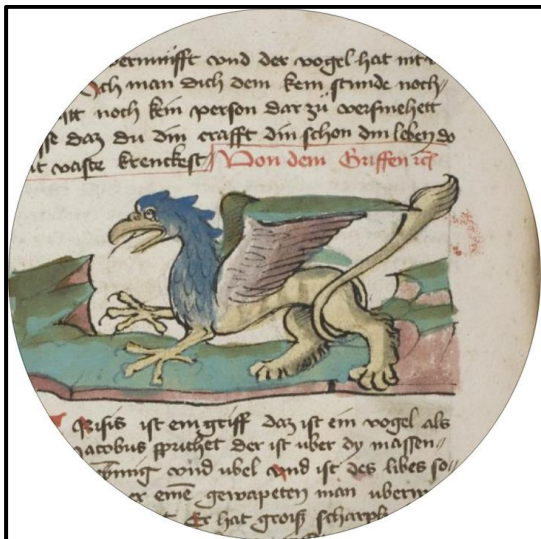 vernunfft vnd der vogel hat nit
man dich dem kein stunde noch
noch kein person dar zü versmehett
daz du din crafft din schon din leben do
vaste krenckest Von dem Griffen etc
Grifis ist ein griff daz ist ein vogel als
Jacobus sprichet der ist uber dy massen
vnd ubel vnd ist des libes so
er eine gewapeten man uber
Er hat groiß scharph